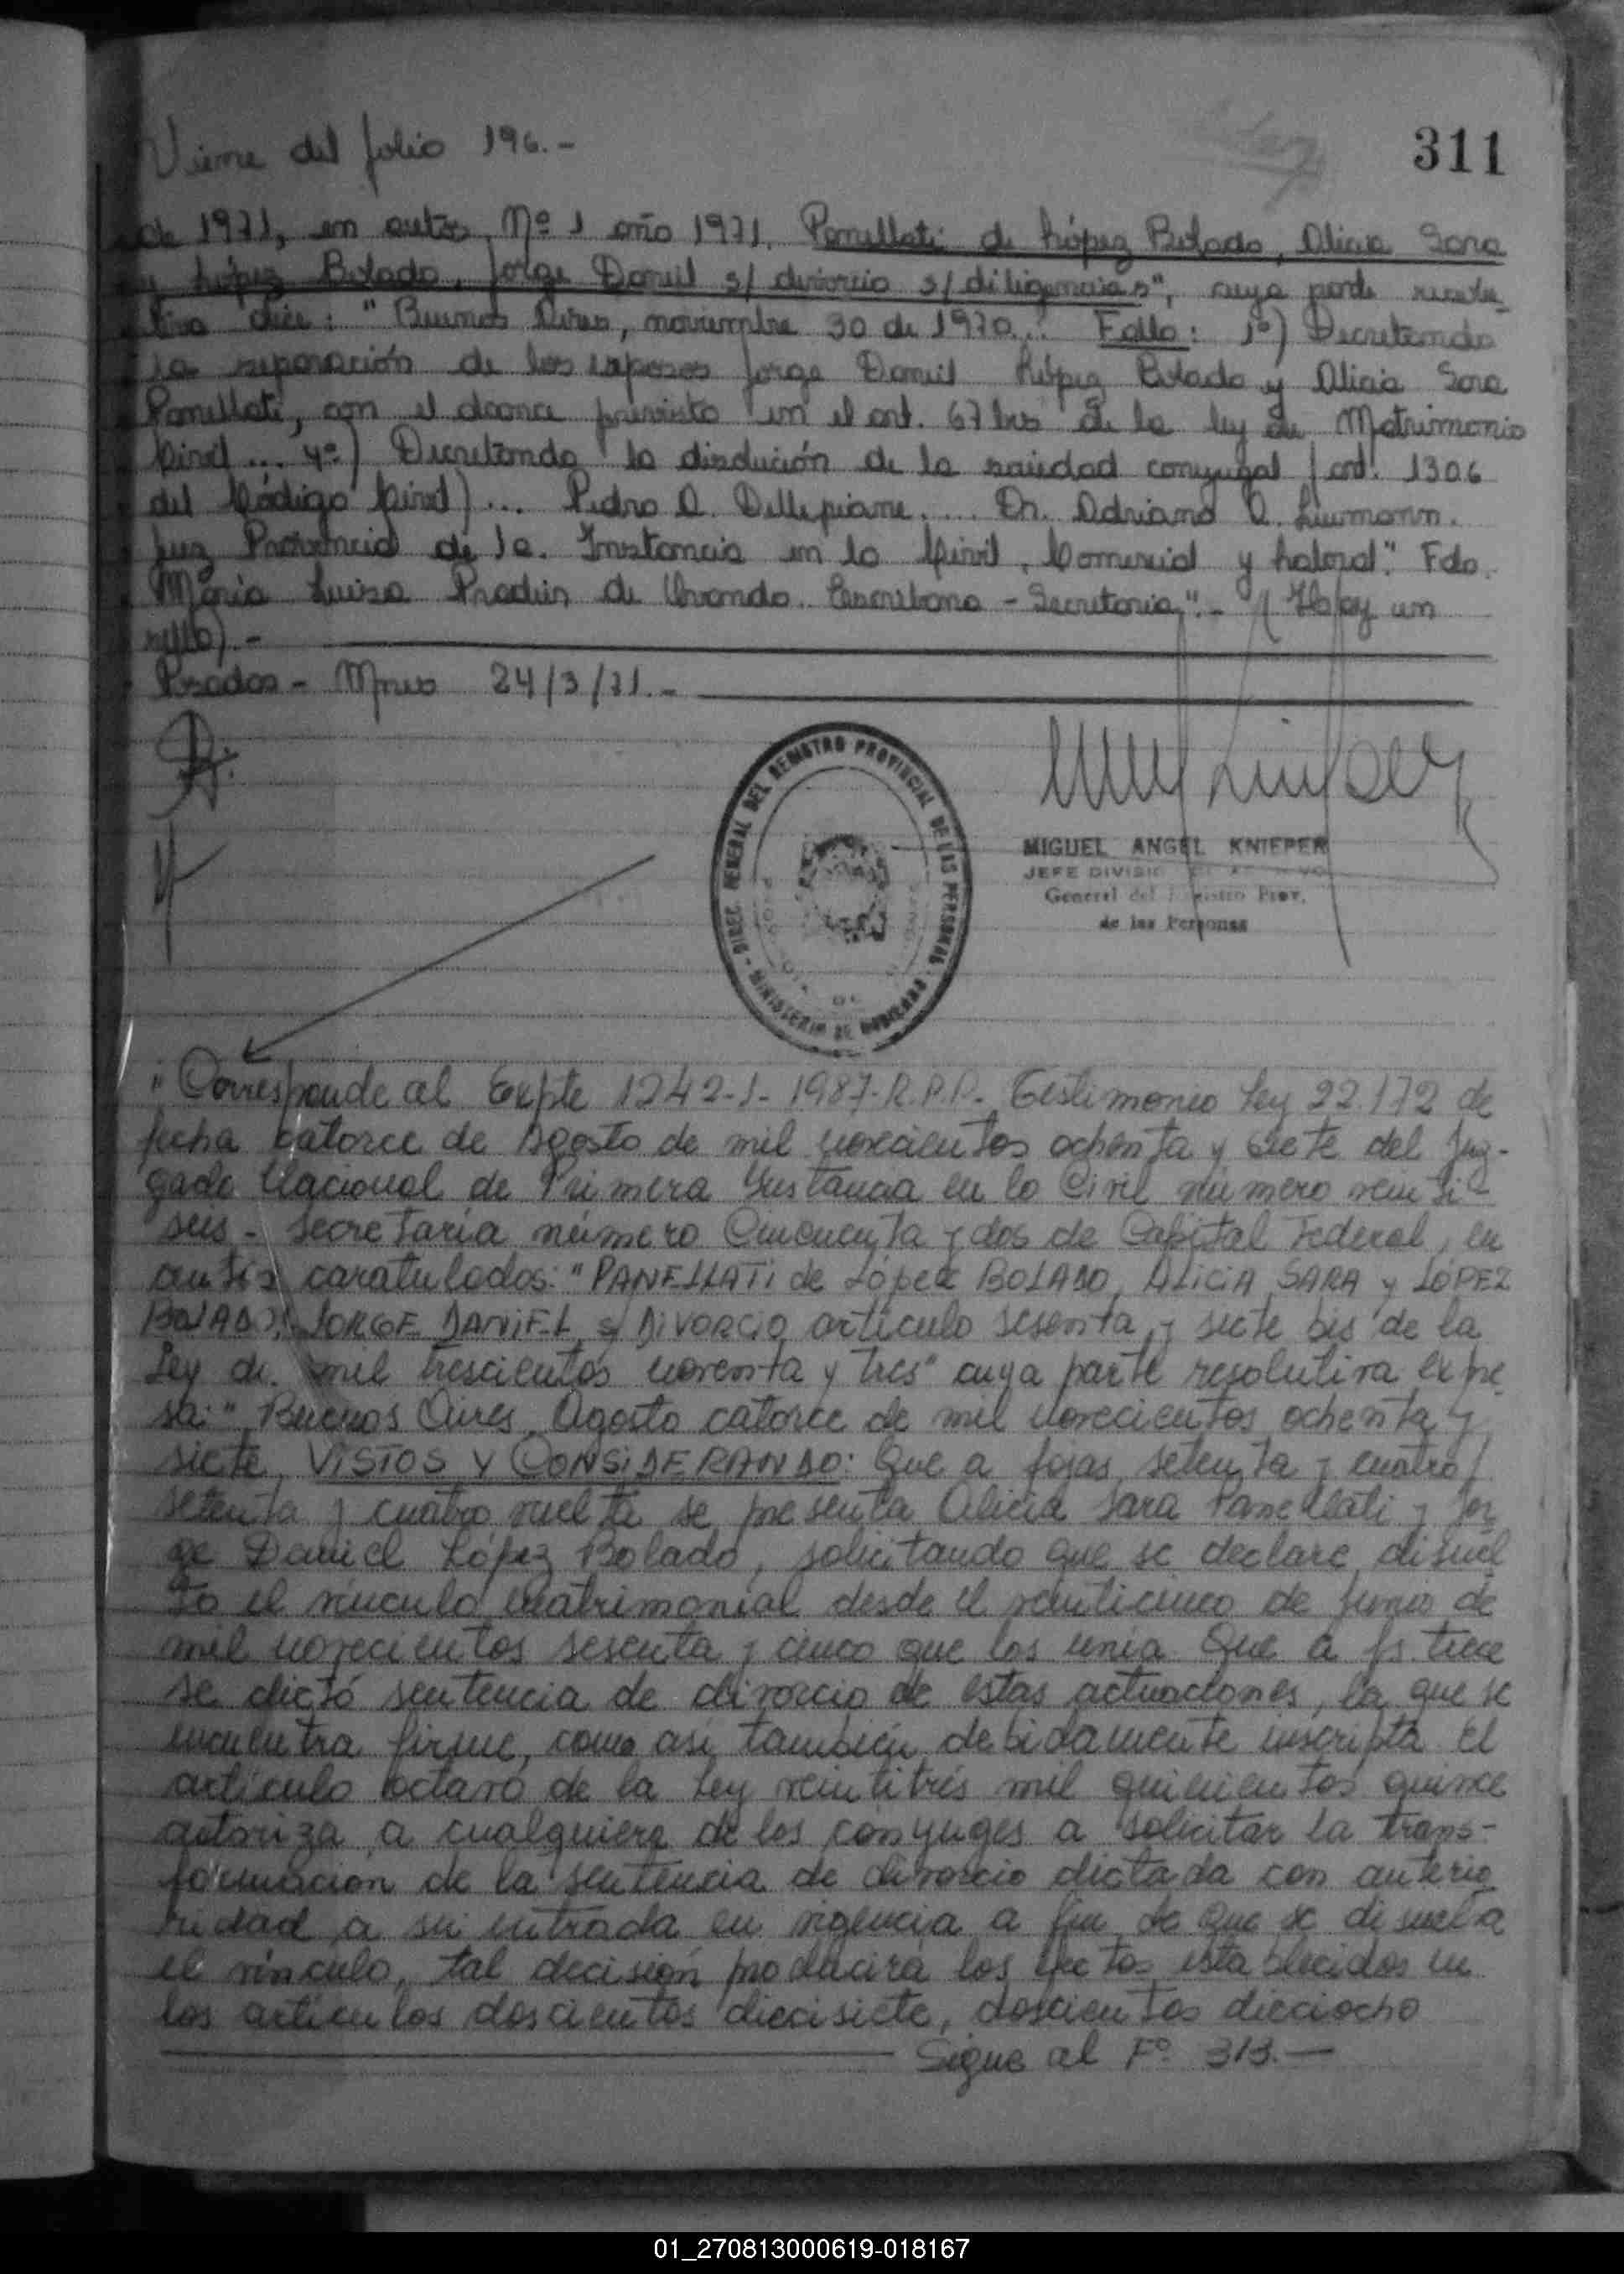 Viene del folio 196.-
311
de 1971, en autos Nº 1 año 1971. Panellati de López Bolado, Alicia Sara
y López Bolado, Jorge Daniel s/ divorcio s/ diligencias", cuya parte resolu-
tiva dice: "Buenos Aires, noviembre 30 de 1970... Fallo: 1º) Decretando
la separación de los esposos Jorge Daniel López Bolado y Alicia Sara
Panellati, con el alcance previsto en el art. 67 bis de la ley de Matrimonio
Civil ... 4º) Decretando la disolución de la sociedad conyugal (art. 1306
del Código Civil)... Pedro A. Dellepiane.... Dr. Adriano A.
Juez Provincial de 1a. Instancia en lo Civil, Comercial y Laboral". Fdo.
María Luisa Pradier de Escribana - Secretaria". - (Hay un
sello).-
Posadas - Mnes 24/3/71.-
DIREC. GENERAL DEL REGISTRO PROVINCIAL DE LAS PERSONAS
MINISTERIO DE GOBIERNO
MIGUEL ANGEL KNIEPER
JEFE DIVISION
General del Registro Prov.
de las Personas
"Corresponde al Expte 1242-J-1987-R.P.P.- Testimonio Ley 22.172 de
fecha catorce de Agosto de mil novecientos ochenta y siete del Juz-
gado Nacional de Primera Instancia en lo Civil número veinti-
seis - Secretaría número Cincuenta y dos de Capital Federal, en
autos caratulados: "PANELLATI de López BOLADO, ALICIA SARA y LÓPEZ
BOLADO, JORGE DANIEL s/ DIVORCIO artículo sesenta y siete bis de la
Ley dos mil trescientos noventa y tres" cuya parte resolutiva expre-
sa: "Buenos Aires, Agosto catorce de mil novecientos ochenta y
siete. VISTOS Y CONSIDERANDO: Que a fojas setenta y cuatro/
setenta y cuatro vuelta se presenta Alicia Sara Panellati y Jor-
ge Daniel López Bolado, solicitando que se declare disuel
to el vínculo matrimonial desde el veinticinco de junio de
mil novecientos sesenta y cinco que los unía. Que a fs. trece
se dictó sentencia de divorcio de estas actuaciones, la que se
encuentra firme, como así también debidamente inscripta. El
artículo octavo de la Ley veintitrés mil quinientos quince
autoriza a cualquiera de los cónyuges a solicitar la trans-
formación de la sentencia de divorcio dictada con anterio
ridad a su entrada en vigencia a fin de que se disuelva
el vínculo, tal decisión producirá los efectos establecidos en
los artículos doscientos diecisiete, doscientos dieciocho
Sigue al Fº 313.-
01_270813000619-018167